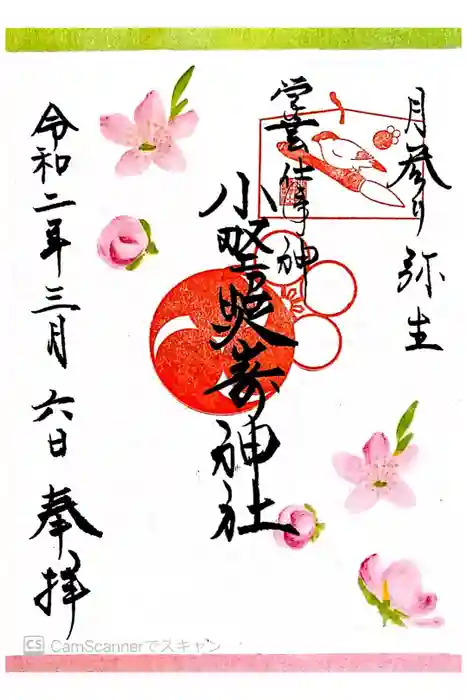 月参り 弥生
学芸仕事神
小野照崎神社
令和二年三月六日 奉拝
CS CamScannerでスキャン